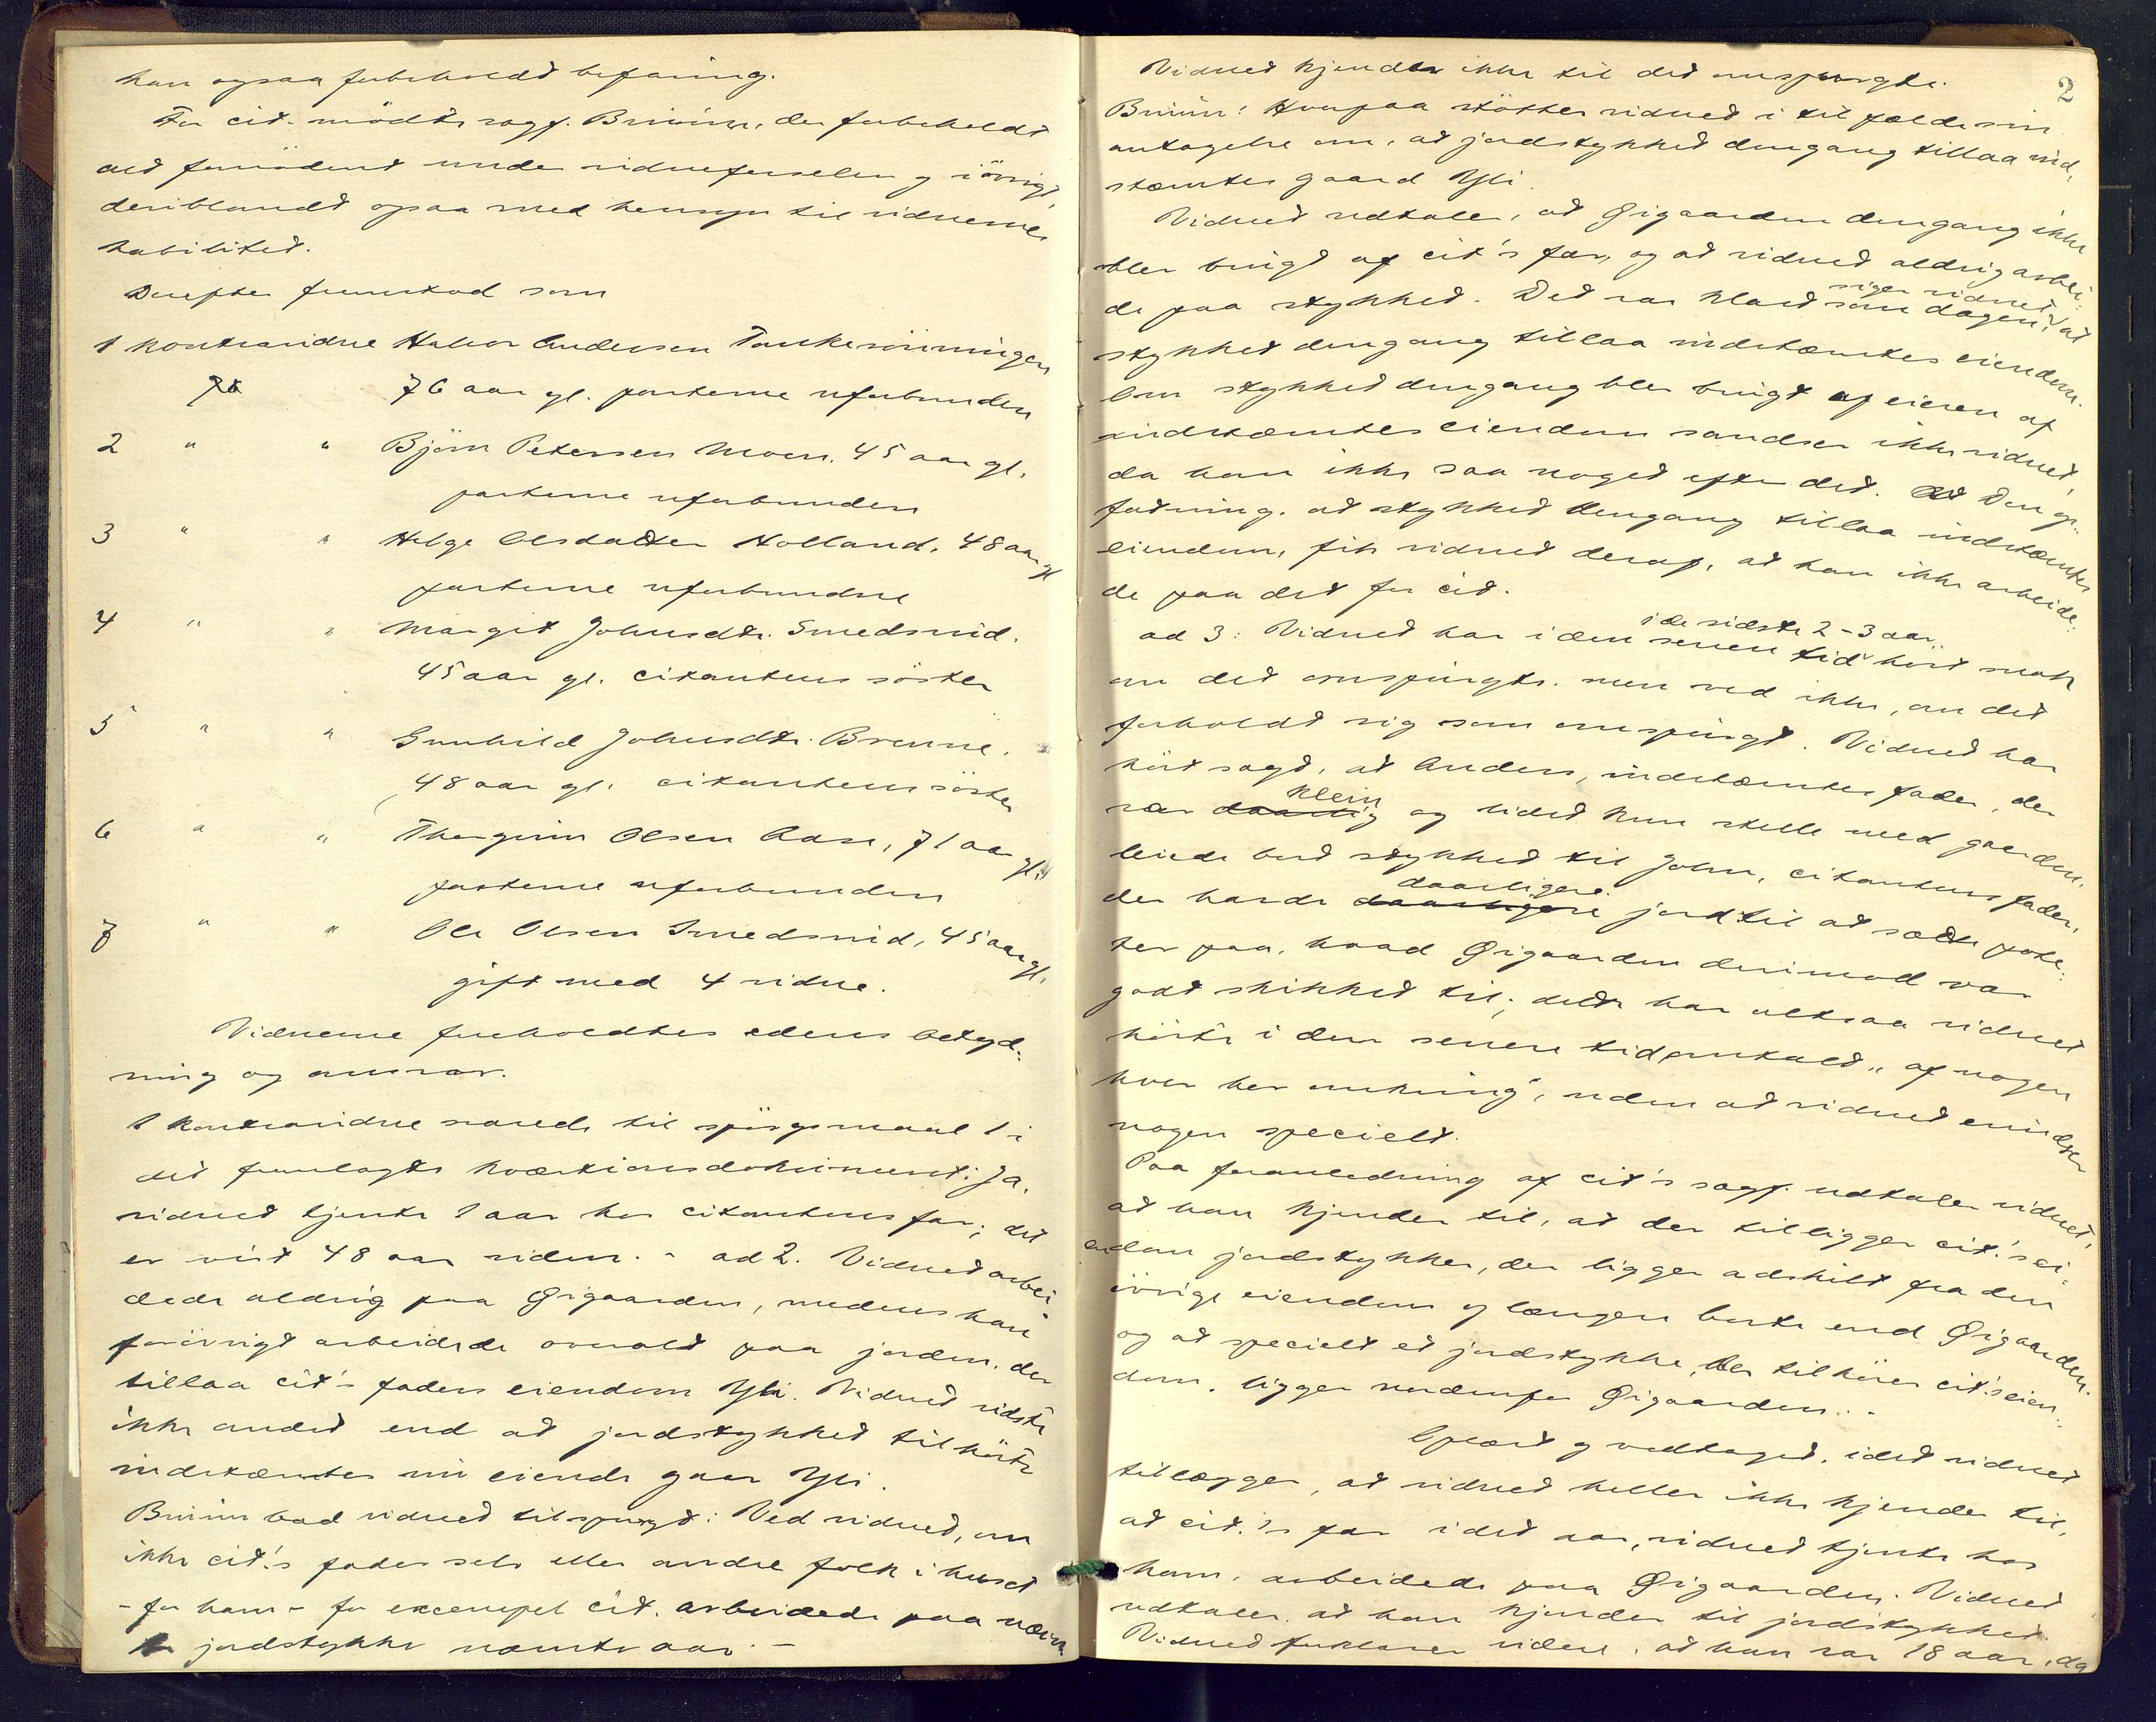 han ogsaa forbeholdt befaring.
For cit. mödte sagf. Bruun, der forbeholdt
alt fornödent under vidneførselen og iövrigt,
deriblandt ogsaa med hensyn til vidnernes
habilitet.
Derefter fremstod som
1 kontravidne Halvor Andersen
76 aar gl. parterne uforbunden
2 " " Björn Petersen Moen, 45 aar gl.
parterne uforbunden
3 " " Helge Olsdatter Holland, 48 aar gl
parterne uforbundne
4 " " Margit Johnsdtr. Smedsvid.
45 aar gl. citantens söster
5 " " Gunhild Johnsdtr. Brenne,
48 aar gl. citantens söster
6 " " Thorgrim Olsen Aase, 71 aar gl.
parterne uforbunden
7 " " Ole Olsen Smedsvid, 45 aar gl.
gift med 4 vidne.
Vidnerne foreholdtes edens betyd:
ning og ansvar.
1 Kontravidne svarede til spörgsmaal 1 i
det fremlagte kvæstionsdokument: Ja,
vidnet tjente 1 aar hos citantens far; det
er vist 48 aar siden. - ad 2. Vidnet arbei
dede aldrig paa Øigaarden, medens han
forövrigt arbeidede overalt paa jorden, der
tillaa cit's faders eiendom Yli. Vidnet vidste
ikke andet end at jordstykket tilhörte
indstæmtes nu eiende gaar Yli.
Bruun bad vidnet tilspurgt: Ved vidnet, om
ikke cit.'s fader selv eller andre folk i huset
- for ham - for exempel cit. arbeidede paa nævn
te jordstykke nævnte aar. -
2
Vidnet kjender ikke til det omspurgte.
Bruun: Hvorpaa stötter vidnet i tilfælde sin
antagelse om, at jordstykket dengang tillaa ind,
stæmtes gaard Yli.
Vidnet udtaler, at Øigaarden dengang ikke
blev brugt af cit's far, og at vidnet aldrig arbei:
siger vidnet
de paa stykket. Det var klart som dagen, at
stykket dengang tillaa indstæmtes eiendom.
Om stykket dengang blev brugt af eieren af
indstæmtes eiendom sandser ikke vidnet,
da han ikke saa noget efter det. Den op:
fatning, at stykket dengang tillaa indstæmtes
eiendom, fik vidnet deraf, at han ikke arbeide:
de paa det for cit.
i de sidste 2-3 aar
ad 3: Vidnet har i den senere tid hört snak
om det omspurgte, men ved ikke, om det
forholdt sig som omspurgt. Vidnet har
hört sagt, at Anders, indstæmtes fader, der
klein
var daarlig og lidet kun stelle med gaarden,
leiede bort stykket til John, citantens fader,
daarligere
der havde daarligere jord til at sætte pote:
ter paa, hvad Øigaarden derimod var
godt skikket til; dette har altsaa vidnet
hört i den senere tid omtalt „af nogen
hver her omkring", uden at vidnet erindrer
nogen specielt.
Paa foranledning af cit's sagf. udtaler vidnet,
at han kjender til, at der tilligger cit.'s ei:
endom jordstykker, der ligger adskilt fra den
övrige eiendom og længere borte end Øigaarden,
og at specielt et jordstykke, der tilhörer cit.'s eien:
dom, ligger nordenfor Øigaarden. -
Oplæst og vedtaget, idet vidnet
tillægger, at vidnet heller ikke kjender til,
at cit.'s far i det aar, vidnet tjente hos
ham, arbeidede paa Øigaarden. Vidnet
udtaler, at han kjender til jordstykket.
Vidnet forklarer videre, at han var 18 aar, da